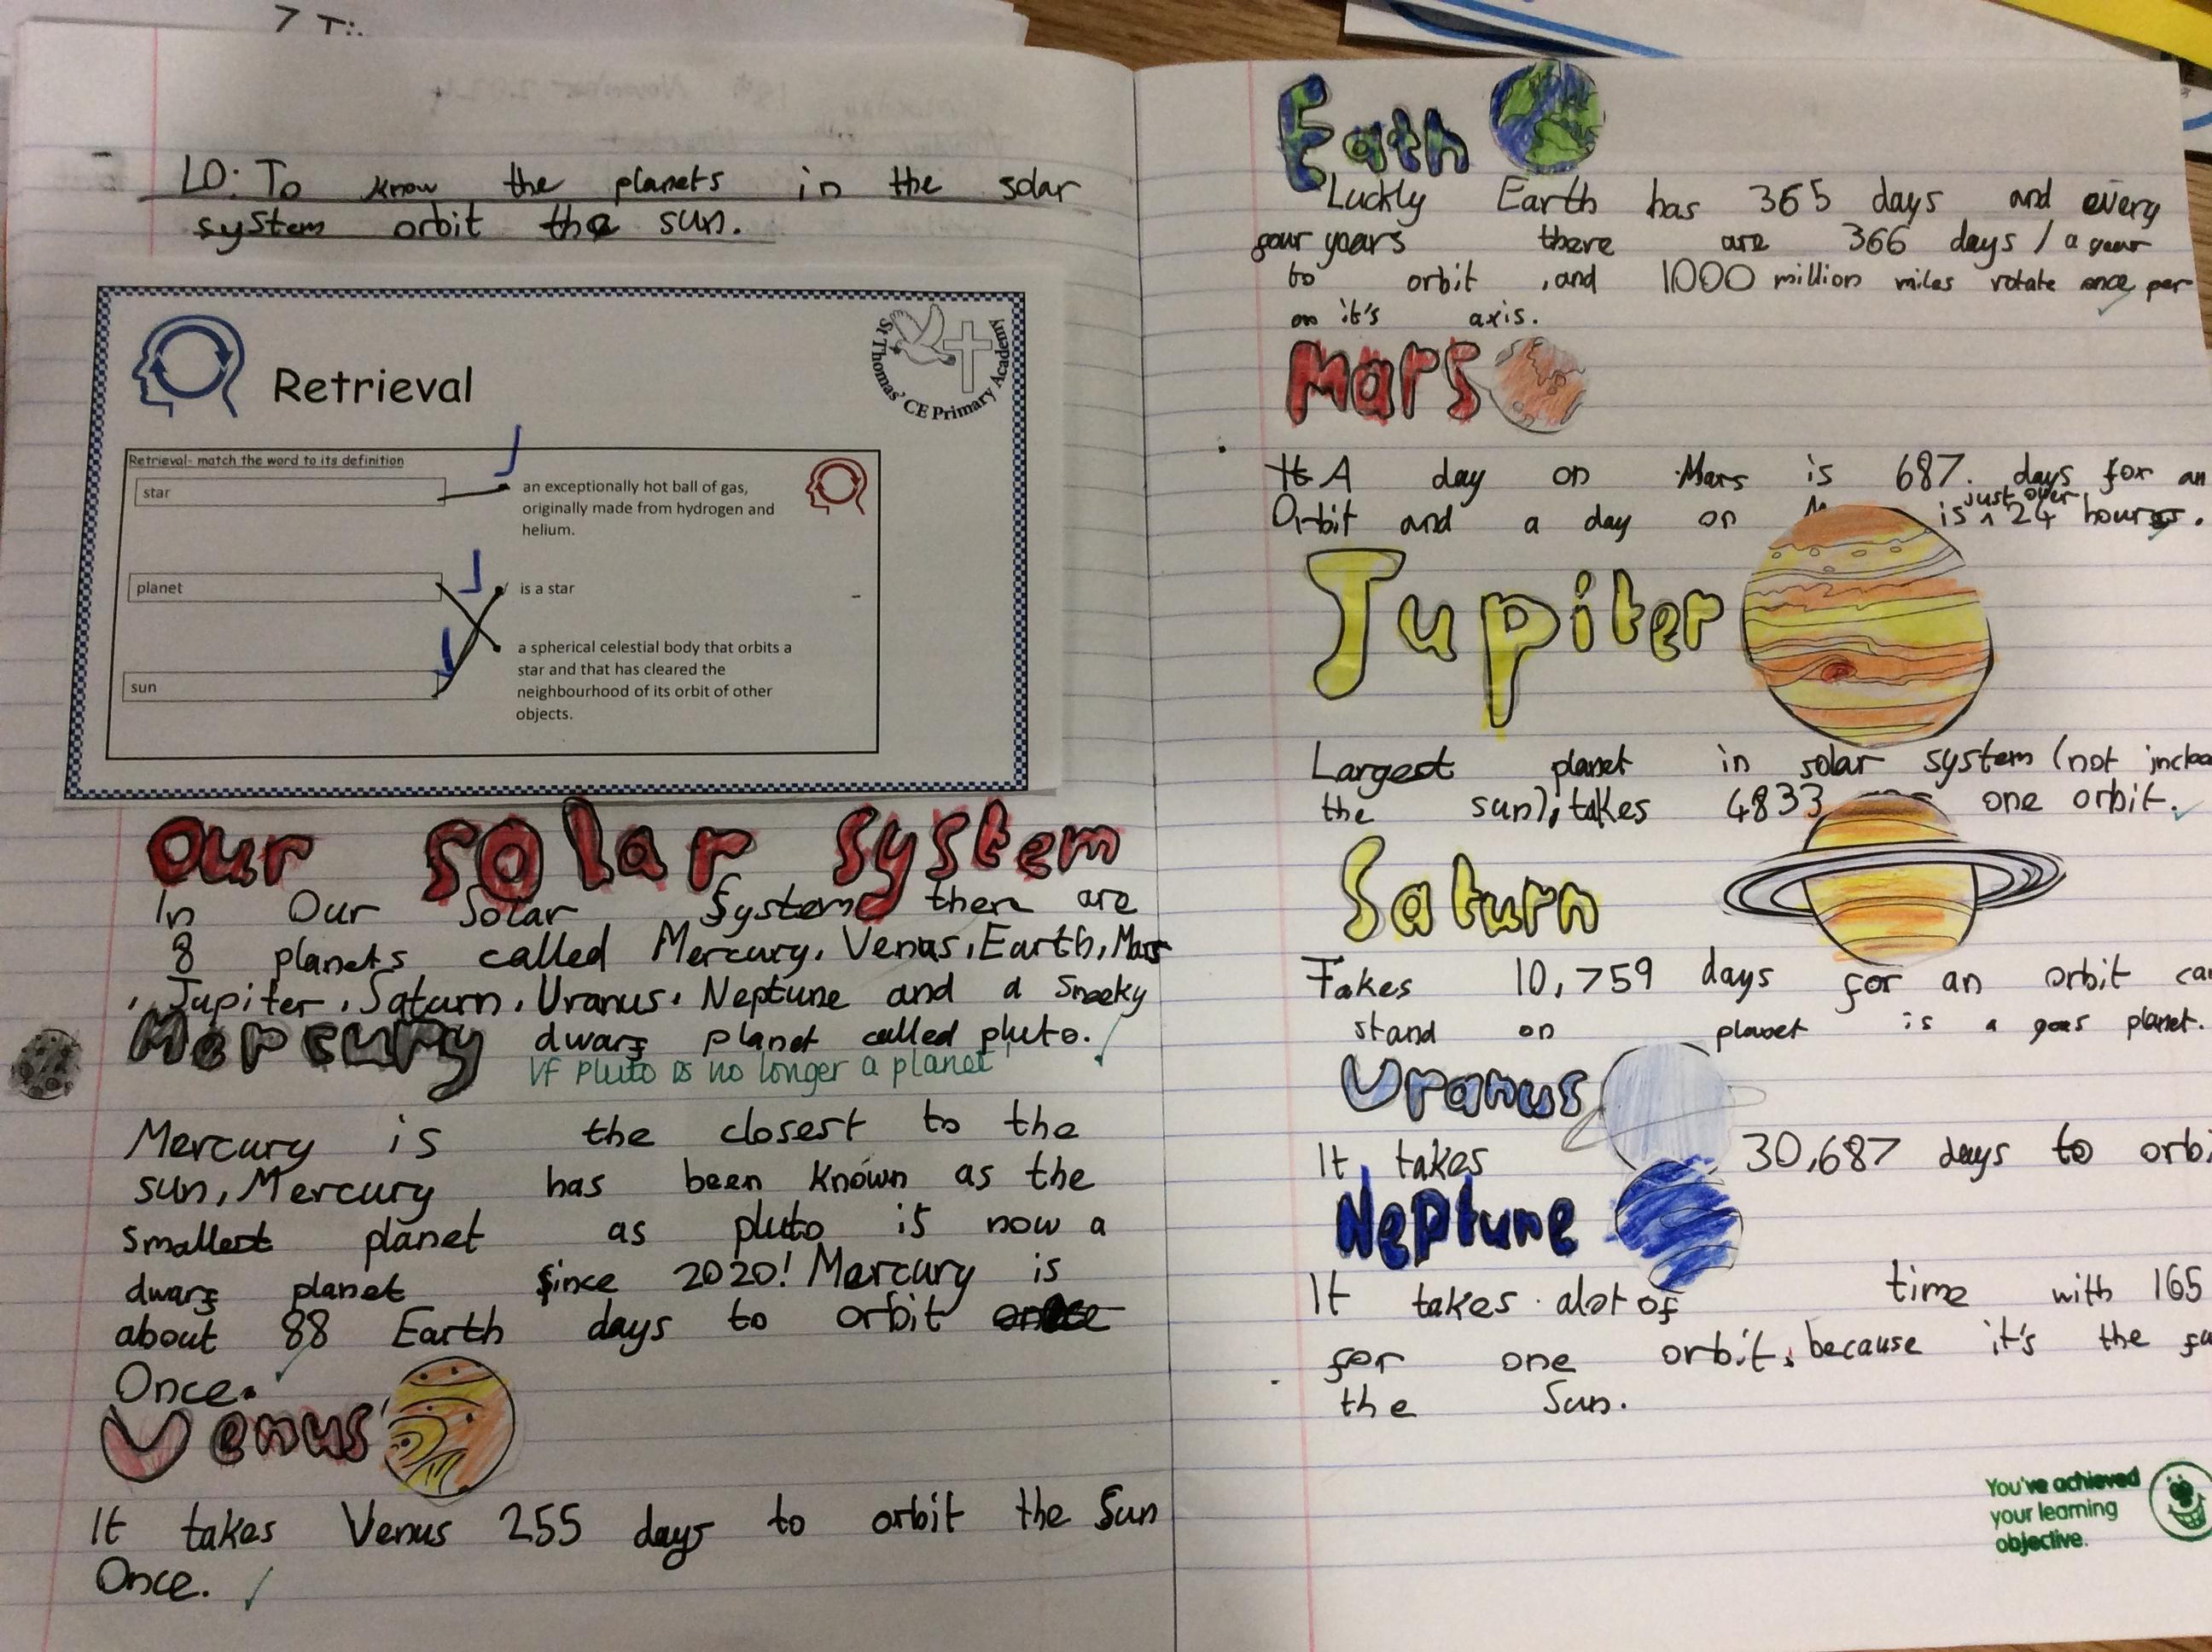 7 Ti
LO: To know the planets in the solar
system orbit the sun.
Retrieval
St Thomas' CE Primary Academy
Retrieval- match the word to its definition
star
an exceptionally hot ball of gas,
originally made from hydrogen and
helium.
planet
is a star
a spherical celestial body that orbits a
star and that has cleared the
neighbourhood of its orbit of other
objects.
sun
Our solar system
In Our Solar System there are
8 planets called Mercury, Venus, Earth, Mars
, Jupiter, Saturn, Uranus, Neptune and a Sneeky
Mercury dwarf planet called pluto.
VF Pluto is no longer a planet
Mercury is the closest to the
sun, Mercury has been known as the
smallest planet as pluto is now a
dwarf planet since 2020! Mercury is
about 88 Earth days to orbit
Once.
Venus
It takes Venus 255 days to orbit the Sun
Once.
Eath
Luckly Earth has 365 days and every
four years there are 366 days / a year
to orbit , and 1000 million miles rotate once per
on it's axis.
Mars
It A day on Mars is 687. days for an
Orbit and a day on is just over 24 hours.
Jupiter
Largest planet in solar system (not
the sun), takes 4833 one orbit.
Saturn
Takes 10,759 days for an orbit
stand on planet is a gas planet.
Uranus
It takes 30,687 days to
Neptune
It takes alot of time with 165
for one orbit, because it's the
the Sun.
You've achieved
your learning
objective.